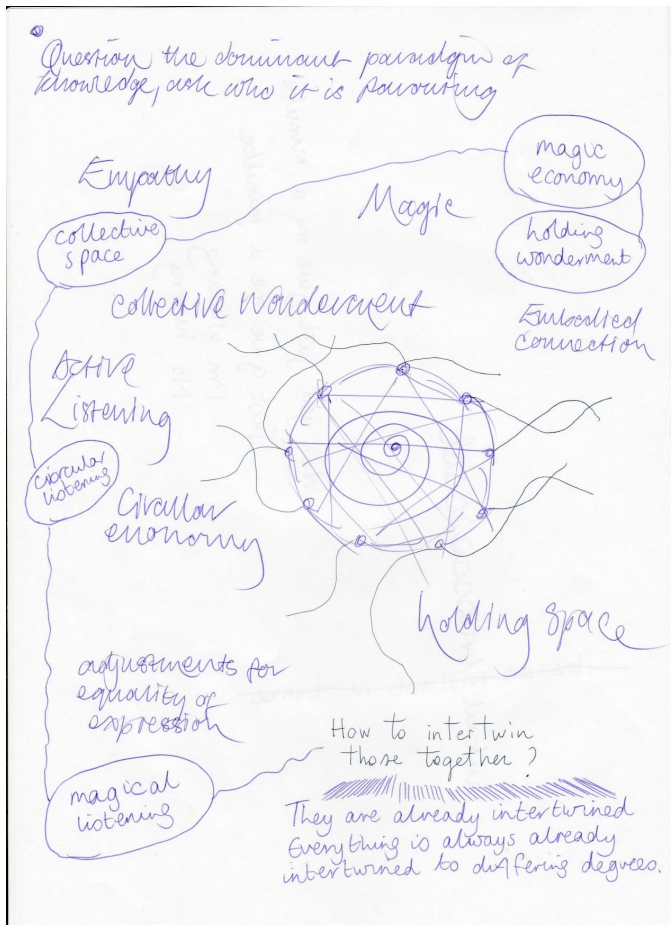 Question the dominant paradigm of
knowledge, ask who it is favouring
magic
economy
Empathy
Magic
collective
space
holding
wonderment
Collective Wonderment
Embodied
connection
Active
Listening
circular
listening
Circular
economy
holding space
adjustments for
equality of
expression
How to intertwin
those together ?
magical
listening
They are already intertwined
Everything is always already
intertwined to differing degrees.